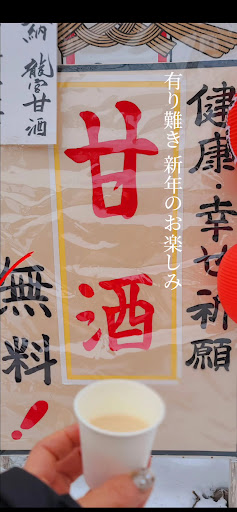 健康・幸せ祈願
有り難き 新年のお楽しみ
甘酒
納 龍宮甘酒
無料!